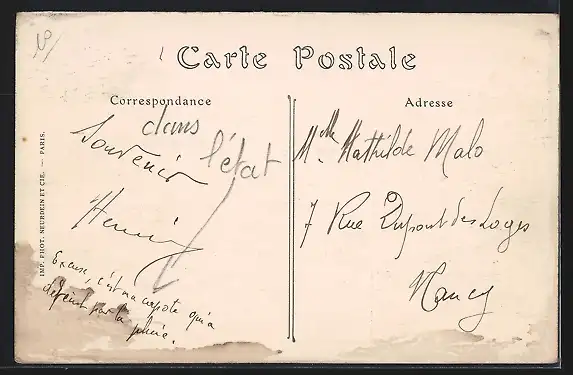 Carte Postale
Correspondance
Adresse
dans
l'état
Souvenir
Henri
Excuse, c'est ma capote qui a
déteint par la pluie.
Mlle Mathilde Malo
7 Rue Dupont des Loges
Nancy
IMP. PHOT. NEURDEIN ET CIE. — PARIS.